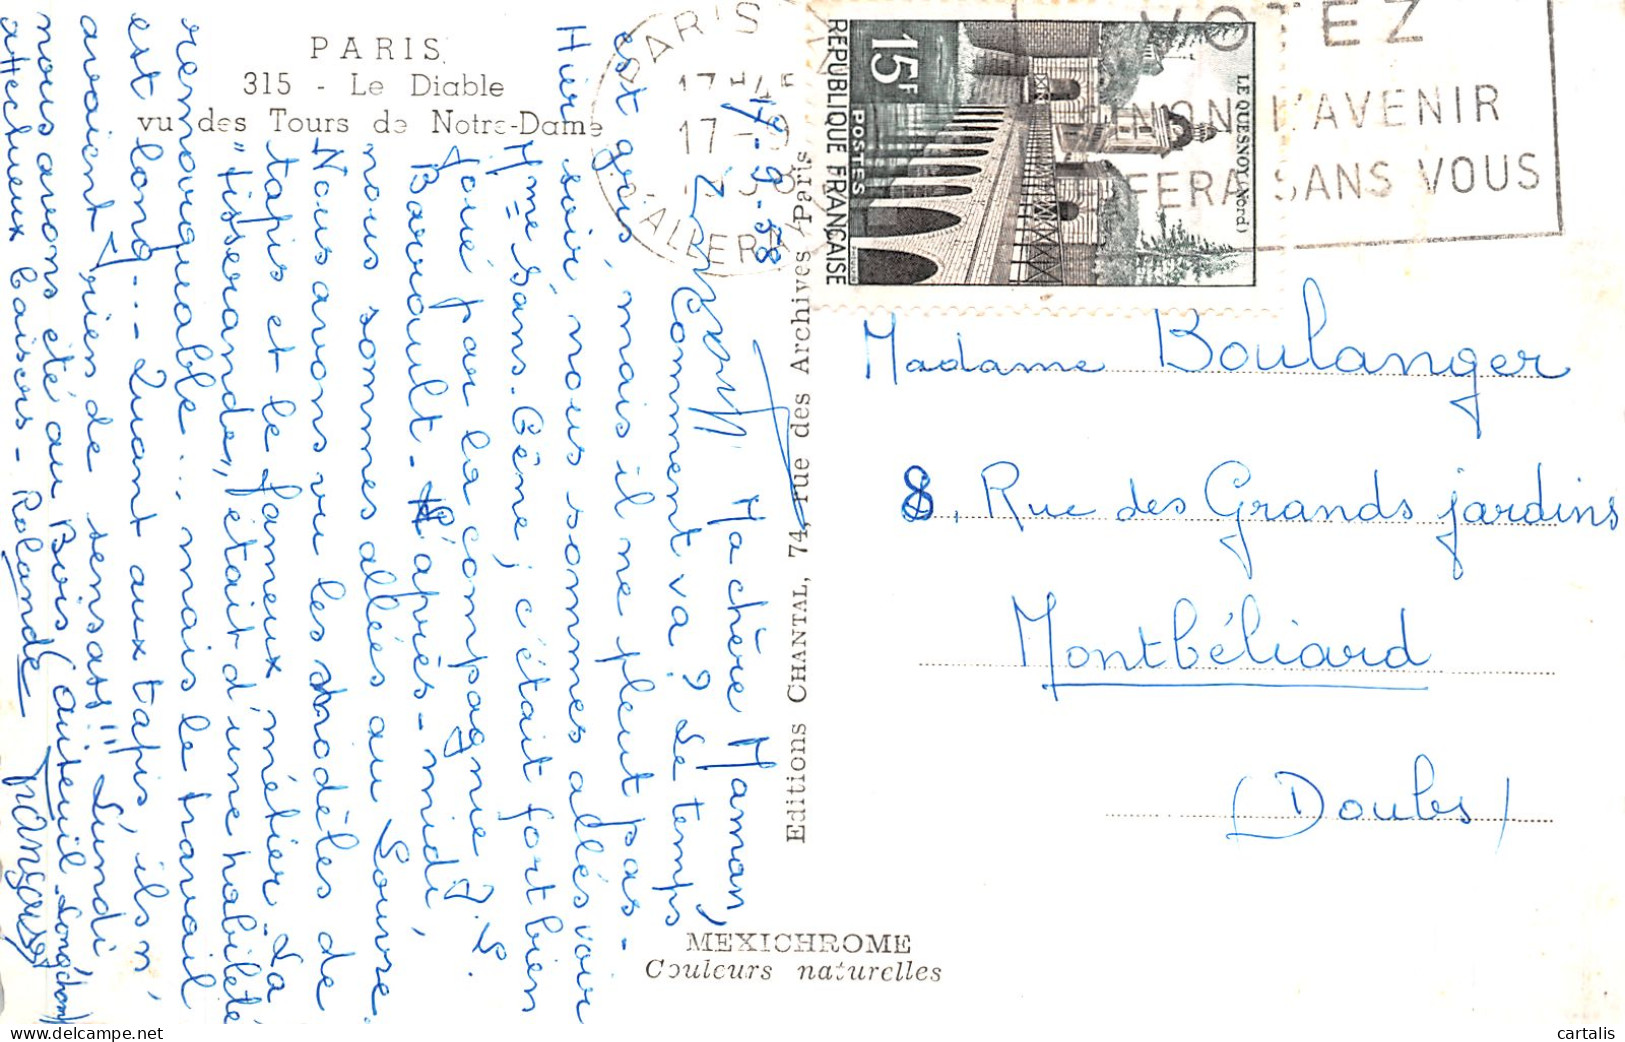 PARIS
315 - Le Diable
vu des Tours de Notre-Dame
17-9-58
Ma chère Maman,
Comment va ? Le temps
est gris, mais il ne pleut pas -
Hier soir, nous sommes allés voir
"Mme Sans-Gêne", c'était fort bien
joué par la compagnie J. L.
Barrault - L'après-midi,
nous sommes allés au Louvre.
Nous avons vu les modèles de
tapis et le fameux métier - La
"tisserande" était d'une habileté
remarquable... mais le travail
est long... - Quant aux tapis, ils n'
avaient rien de sensass!! Lundi,
nous avons été au Bois (Auteuil, Longchamp)
affectueux baisers - Rolande
Editions CHANTAL, 74, rue des Archives - Paris
MEXICHROME
Couleurs naturelles
PARIS
17H45
17-9
REPUBLIQUE FRANÇAISE
15F
POSTES
LE QUESNOY (Nord)
VOTEZ
SINON L'AVENIR
SE FERA SANS VOUS
Madame Boulanger
8, Rue des Grands jardins
Montbéliard
(Doubs)
cartalis
www.delcampe.net